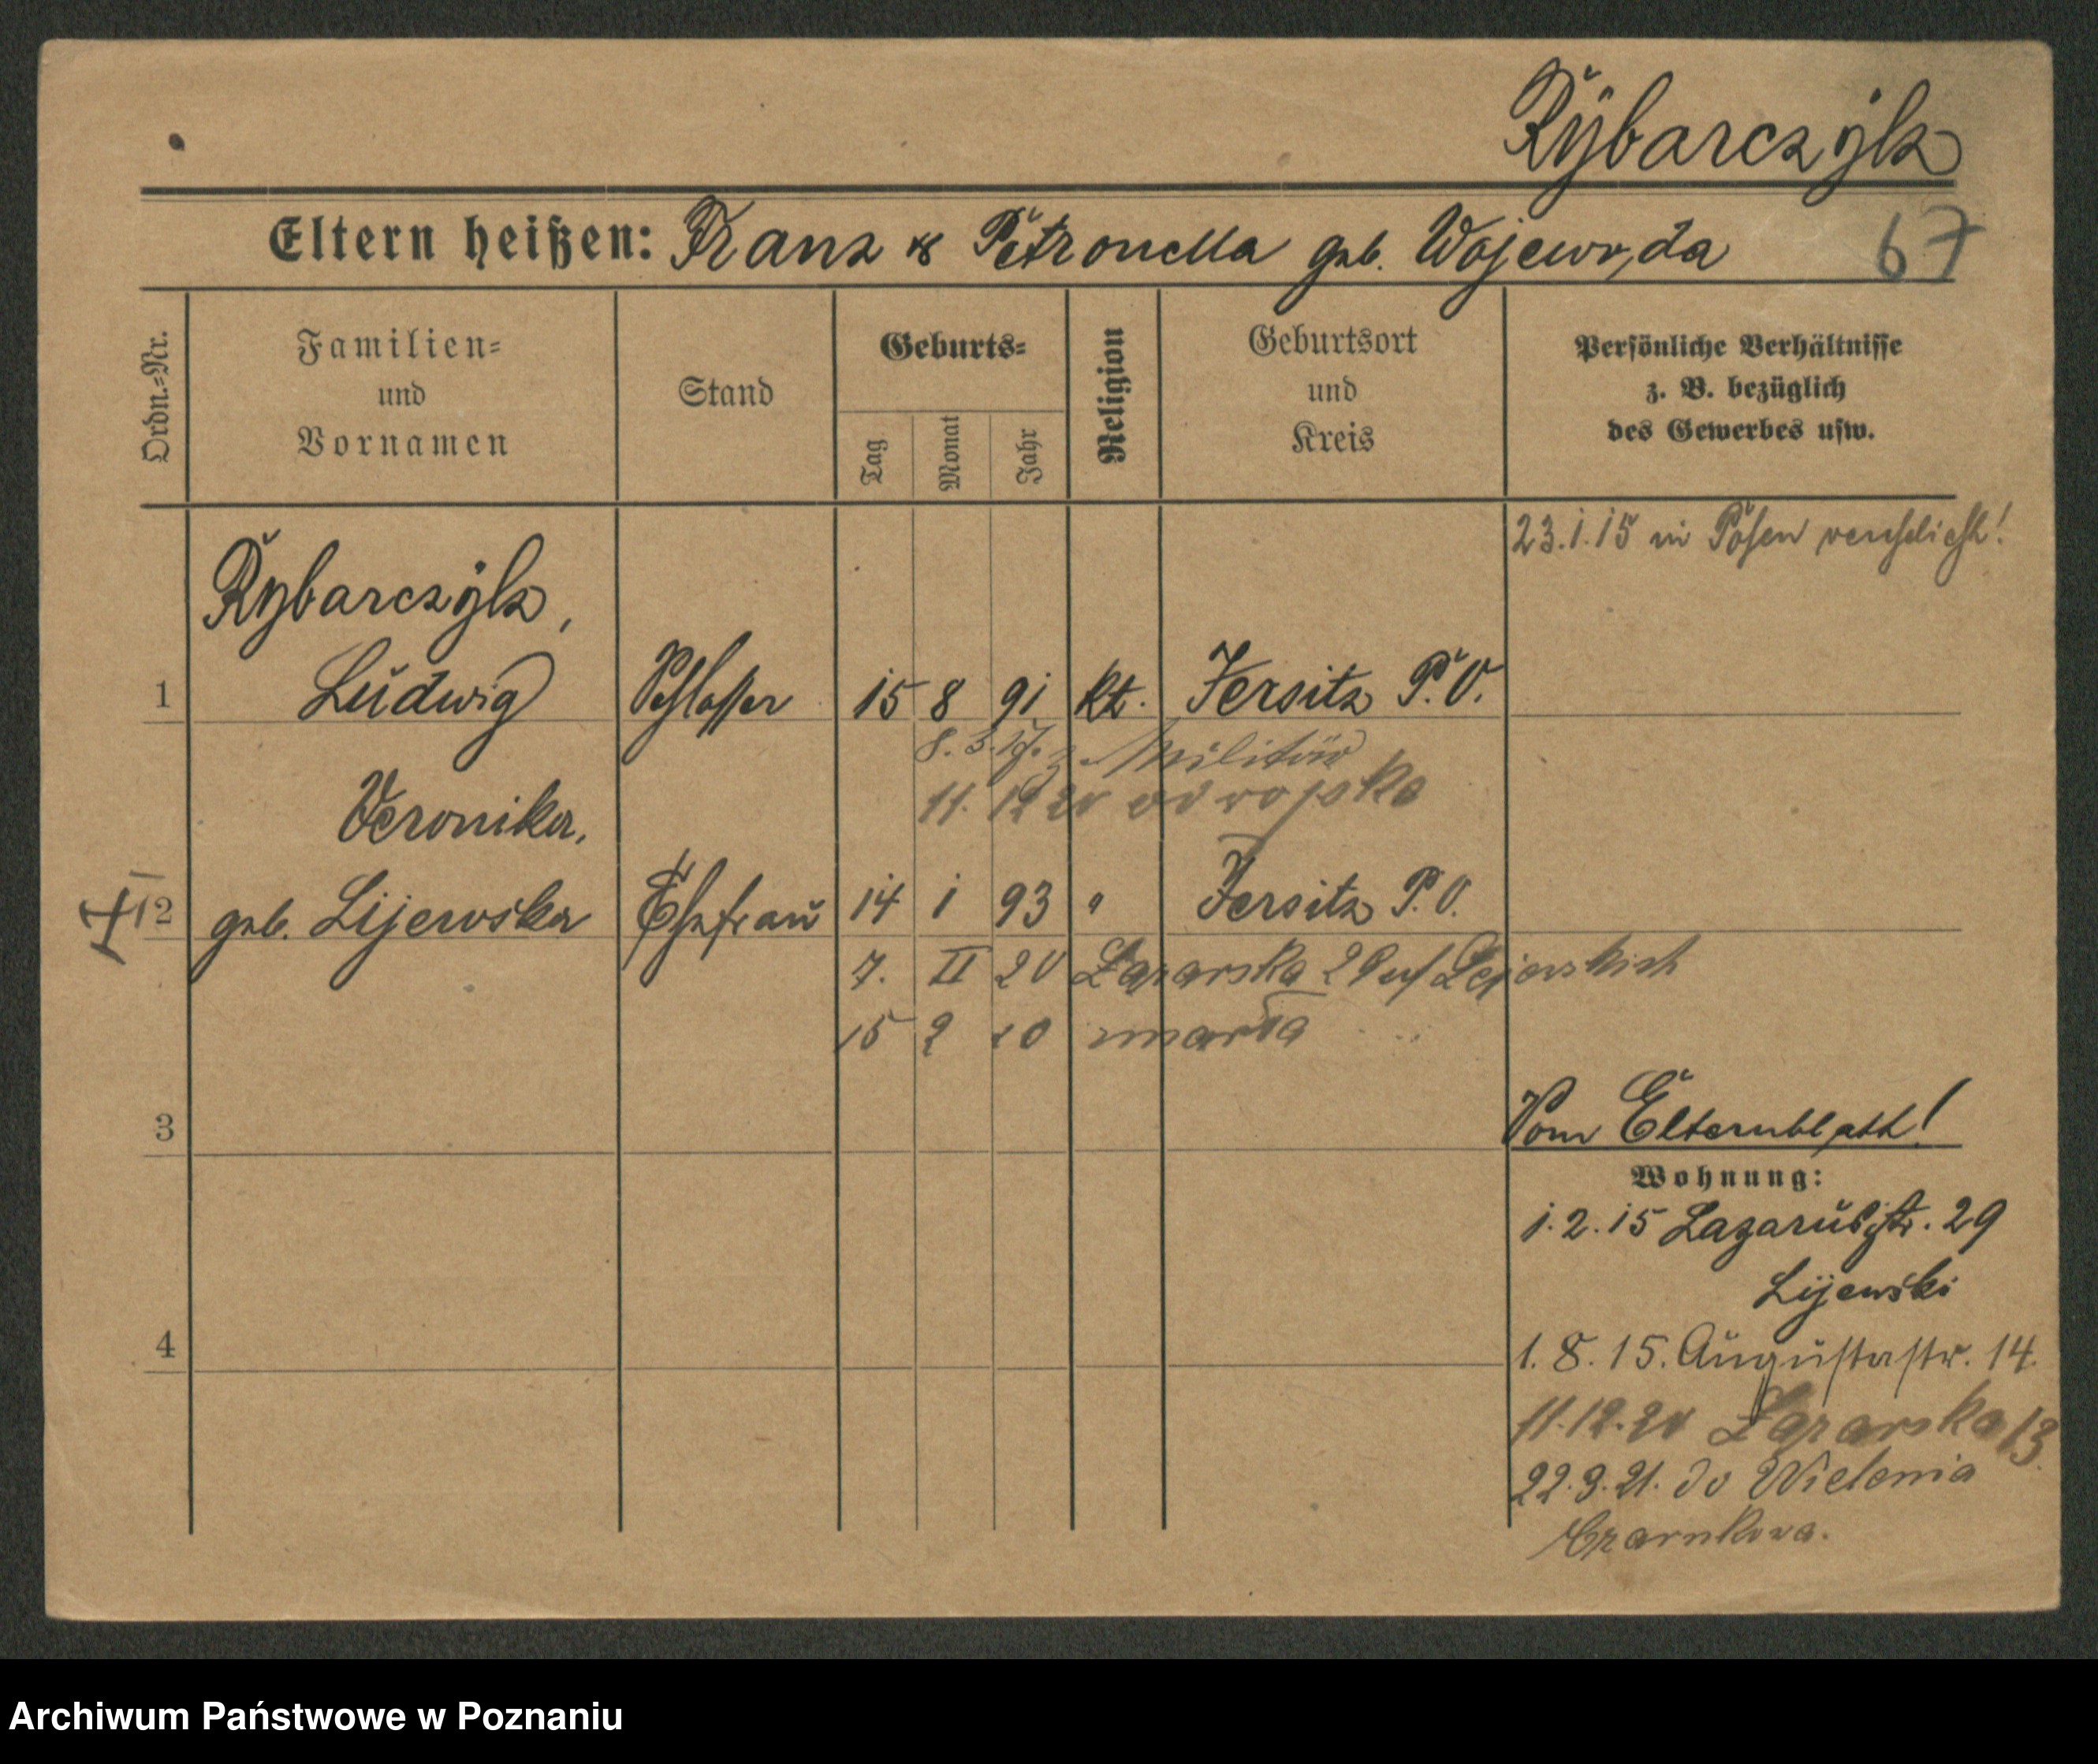 Rybarczyk
Eltern heißen: Franz & Petronella geb. Wojewoda
67
Ordn.-Nr.
Familien- und Vornamen
Stand
Geburts-
Tag
Monat
Jahr
Religion
Geburtsort und Kreis
Persönliche Verhältnisse
z. B. bezüglich
des Gewerbes usw.
23.1.15 in Posen verehelicht!
Rybarczyk,
1 Ludwig Schlosser 15 8 91 kt. Jersitz P.O.
8. 3. 17. z. Militär
11. 12 20 od wojska
Veronika,
2 geb. Lijewska Ehefrau 14 1 93 " Jersitz P.O.
7. II 20 Łazarska
15 2 20 zmarła
3
Vom Elternblatt!
Wohnung:
1.2.15 Lazarusstr. 29
Lijewski
4
1.8.15. Augustastr. 14.
11.12.20 Łazarska 13.
22.3.21. do Wielenia
Czarnkowa.
Archiwum Państwowe w Poznaniu